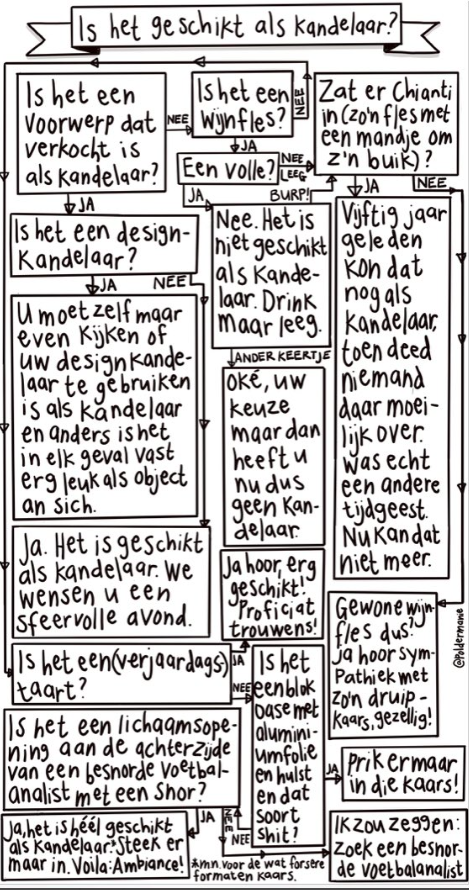 Is het geschikt als kandelaar?
Is het een
voorwerp dat
verkocht is
als kandelaar?
NEE
Is het een
wijnfles?
NEE
JA
Een volle?
NEE
LEEG
JA
BURP!
Zat er Chianti
in (zo'n fles met
een mandje om
z'n buik)?
JA
NEE
JA
Is het een design-
kandelaar?
JA
NEE
U moet zelf maar
even kijken of
uw designkande-
laar te gebruiken
is als kandelaar
en anders is het
in elk geval vast
erg leuk als object
an sich.
Nee. Het is
niet geschikt
als kande-
laar. Drink
maar leeg.
ANDER KEERTJE
Oké, uw
keuze
maar dan
heeft u
nu dus
geen kan-
delaar.
Vijftig jaar
geleden
kon dat
nog als
kandelaar,
toen deed
niemand
daar moei-
lijk over.
Was echt
een andere
tijdgeest.
Nu kan dat
niet meer.
Ja. Het is geschikt
als kandelaar. We
wensen u een
sfeervolle avond.
Ja hoor, erg
geschikt!
Proficiat
trouwens!
Gewone wijn-
fles dus?
Ja hoor sym-
pathiek met
zo'n druip-
kaars, gezellig!
@Poldermanie
Is het een (verjaardags)
taart?
JA
NEE
Is het
een blok
oase met
alumini-
umfolie
en hulst
en dat
soort
shit?
JA
NEE
Prik er maar
in die kaars!
Is het een lichaamsope-
ning aan de achterzijde
van een besnorde voetbal-
analist met een Shor?
JA
NEE
Ja, het is héél geschikt
als kandelaar.* Steek er
maar in. Voila: Ambiance!
*m.n. voor de wat forsere
formaten kaars.
Ik zou zeggen:
zoek een besnor-
de voetbalanalist